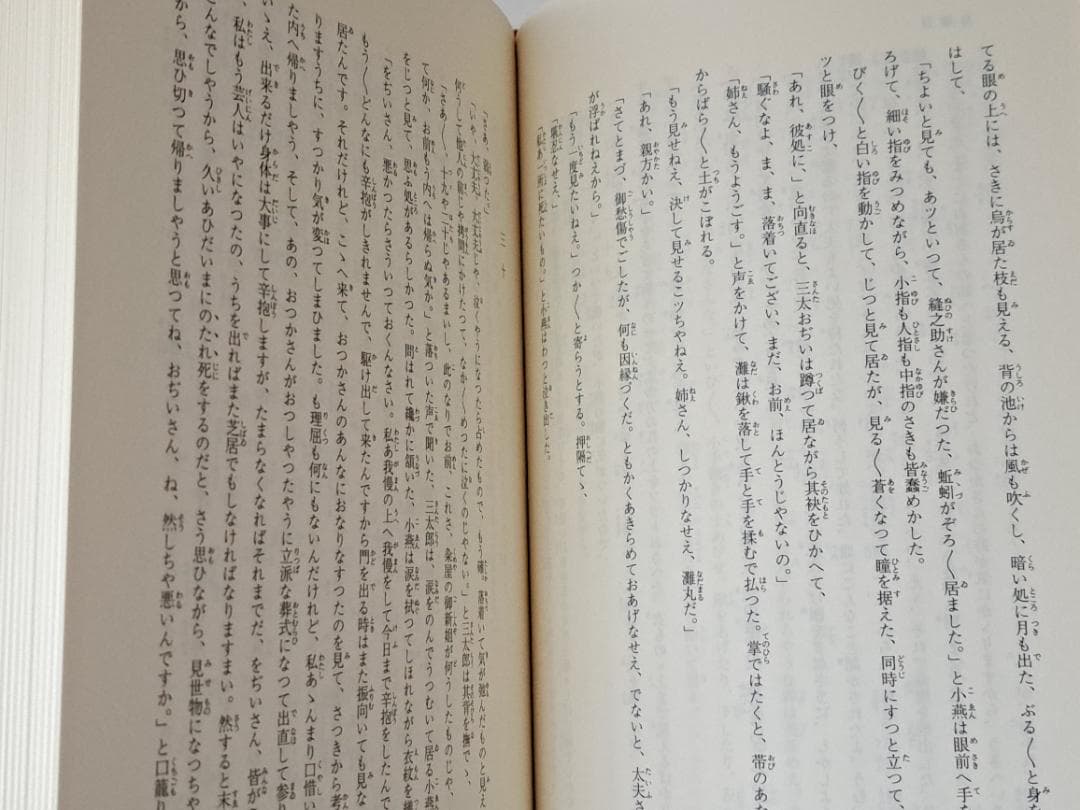 てる眼の上には、さきに烏が居た枝も見える、背の池からは風も吹くし、暗い処に月も出た、ぶる〱と身
はして、
「ちよいと見ても、あツといつて、縫之助さんが嫌だつた、蚯蚓がぞろ〱居ました。」と小燕は眼前へ手
ろげて、細い指をみつめながら、小指も人指も中指のさきも皆蠢めかした。
びく〱と白い指を動かして、じつと見て居たが、見る〱蒼くなつて瞳を据えた、同時にすつと立つて
ツと眼をつけ、
「あれ、彼処に、」と向直ると、三太おぢいは蹲つて居ながら其袂をひかへて、
「騒ぐなよ、ま、ま、落着いてござい、まだ、お前、ほんとうじやないの。」
「姉さん、もうようごす。」と声をかけて、灘は鍬を落して手と手を揉むで払つた。掌ではたくと、帯のあ
からばら〱と土がこぼれる。
「もう見せねえ、決して見せるこツちやねえ。姉さん、しつかりなせえ、灘丸だ。」
「あれ、親方かい。」
「さてとまづ、御愁傷でごしたが、何も因縁づくだ。ともかくあきらめておあげなせえ、でないと、太夫さ
が浮ばれねえから。」
「もう一度見たいねえ。」つか〱と寄らうとする。押隔てゝ、
「堪忍なせえ。」
「私あ一所に死たいもの。」と小燕はわつと泣き出した。
三十
「いや、大丈夫、大丈夫じや、泣くやうになつたら占めたもので、もう確、落着いて気が弛んだものと見え
「さあ〱、十九や二十じやあるまいし、此のなりでお前、これさ、粂屋の御新姐が何うしたものじや、
て何か、お前もう内へは帰らぬ気か。」と落ついた声で聞いた、三太郎は、涙をのんでうつむいて居る小燕
をじつと見て、思ふ処があるらしかつた。問はれて纔かに頷いた、小燕は涙を拭つてしほれながら衣紋を
「をぢいさん、悪かつたらさういつておくんなさい。私あ我慢の上へ我慢をして今日まで辛抱をしたんで
もう〱どんなにも辛抱がしきれませんで、駆け出して来たんですから門を出る時はまた振向いても見な
居たんです。それだけれど、こゝへ来て、おつかさんのあんなにおなりなすつたのを見て、さつきから考
りますうちに、すつかり気が変つてしまひました。も理屈も何にもないんだけれど、私あゝんまり口惜い
た内へ帰りましやう、そして、あの、おつかさんがおつしやつたやうに立派な葬式になつて出直して参り
いゝえ、出来るだけ身体は大事にして辛抱しますが、たまらなくなればそれまでだ、をぢいさん、皆が
私はもう芸人はいやになつたの、うちを出ればまた芝居でもしなければなりますまい。然すると末
そんなでしやうから、久いあひだいまにのたれ死をするのだと、さう思ひながら、見世物につちや
から、思ひ切つて帰りましやうと思つてね、おぢいさん、ね、然しちや悪いんですか。」と口籠り